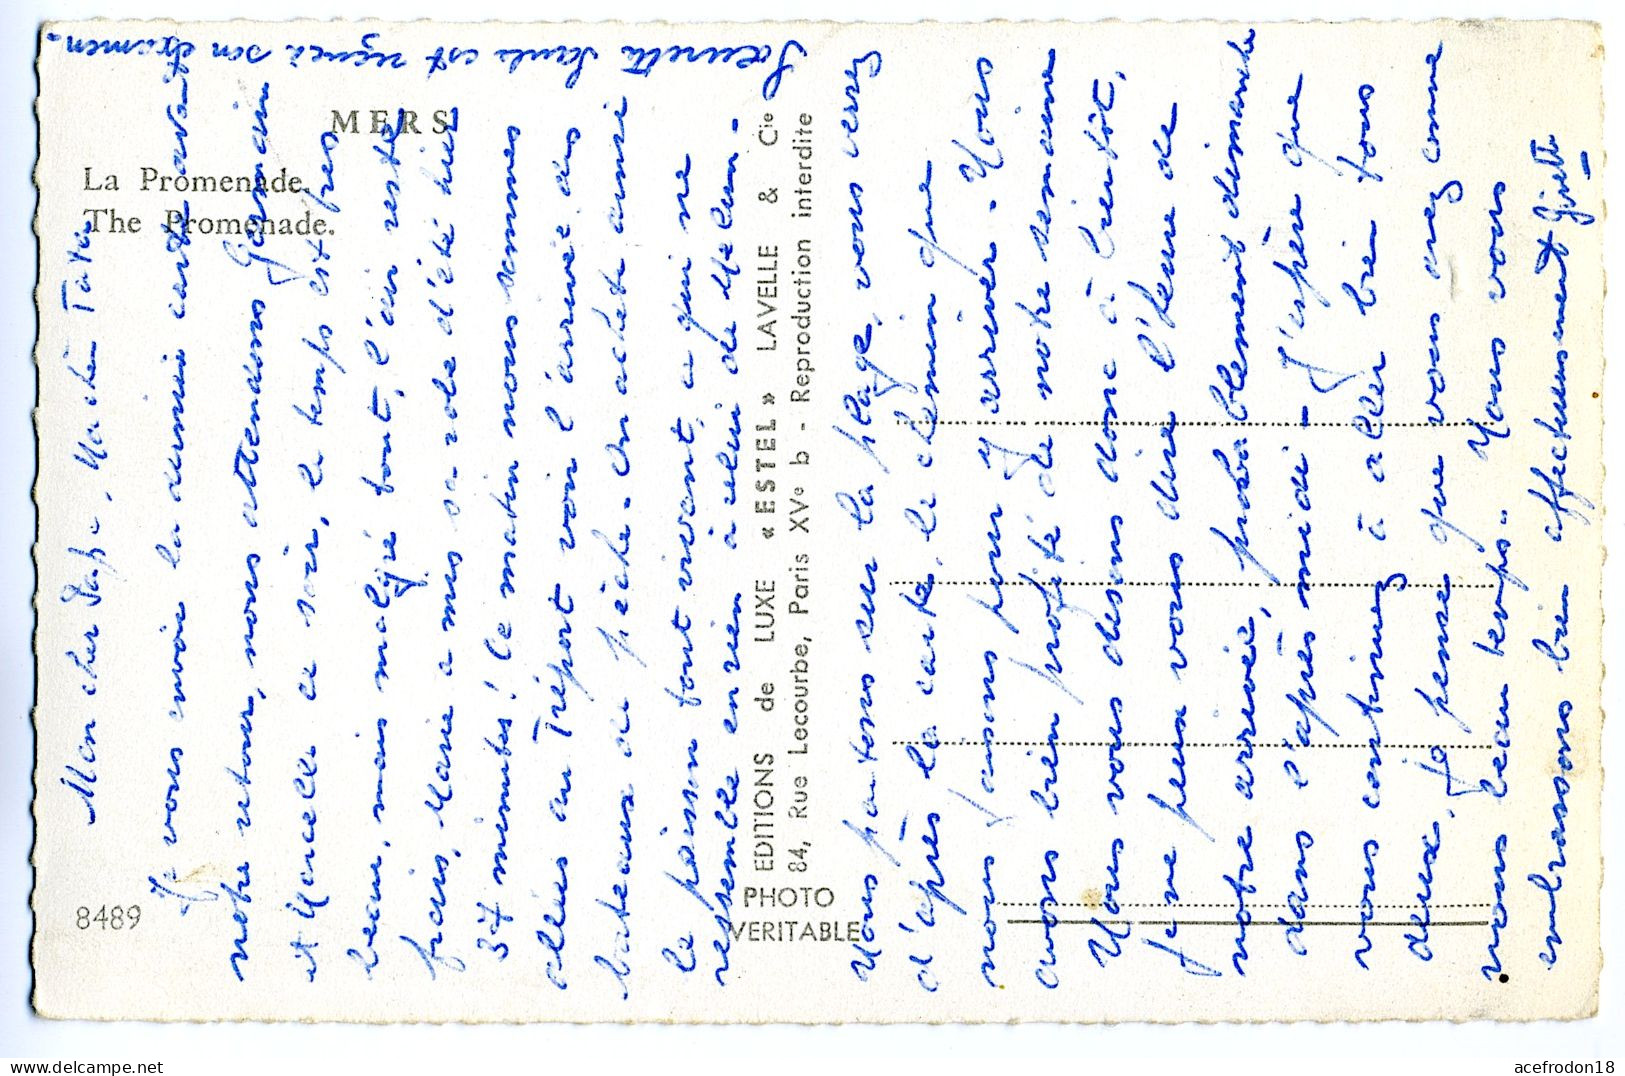 MERS
La Promenade.
The Promenade.
8489
PHOTO
VERITABLE
EDITIONS de LUXE « ESTEL » LAVELLE & Cie
84, Rue Lecourbe, Paris XVe b - Reproduction interdite
Mon cher Papa, Ma chère Tata,
Je vous envoie la dernière carte avant
notre retour, nous attendons Germain
et Marcelle ce soir, le temps est très
beau, mais malgré tout, l'air reste
frais, Marie a mis sa robe d'été hier
37 minutes! Ce matin nous sommes
allées au Tréport voir l'arrivée des
bateaux de pêche - On achète ainsi
le poisson tout vivant, ça qui ne
ressemble en rien à celui de Melun -
Nous partons sur la plage, vous verrez
d'après la carte, le chemin que
nous faisons pour y arriver - Nous
avons bien profité de notre semaine
Nous vous disons donc à bientôt,
Je ne peux vous dire l'heure de
notre arrivée, probablement dimanche
dans l'après midi - J'espère que
vous continuez à aller bien tous
deux, Je pense que vous avez comme
nous beau temps - Nous vous
embrassons bien affectueusement Ginette
Laurette Paule est reçue à son examen.
acefrodon18